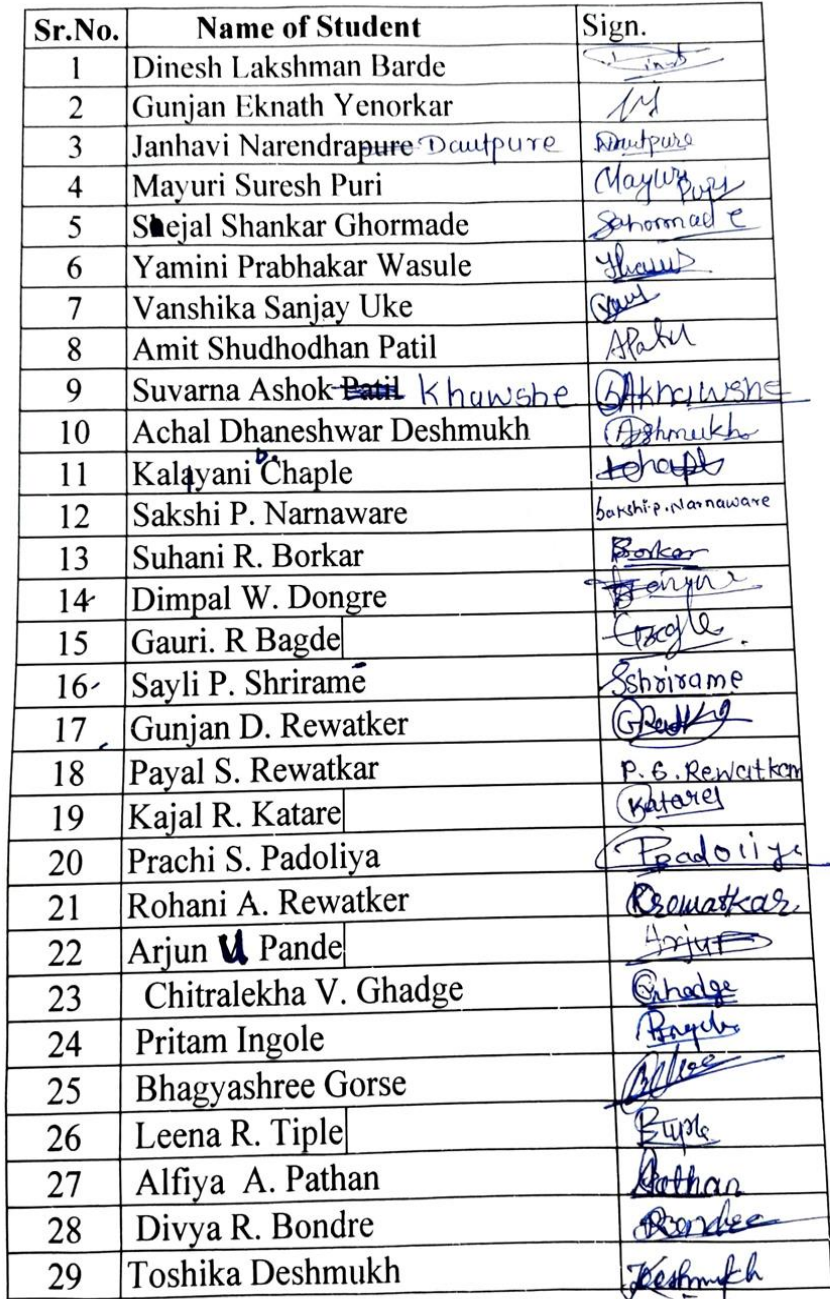 Sr.No. Name of Student Sign.
1 Dinesh Lakshman Barde
2 Gunjan Eknath Yenorkar
3 Janhavi Narendrapure Dautpure Dautpure
4 Mayuri Suresh Puri Mayuri Puri
5 Shejal Shankar Ghormade
6 Yamini Prabhakar Wasule
7 Vanshika Sanjay Uke
8 Amit Shudhodhan Patil APatil
9 Suvarna Ashok Patil Khawshe SAkhawshe
10 Achal Dhaneshwar Deshmukh
11 Kalayani D. Chaple
12 Sakshi P. Narnaware Sakshi.P.Narnaware
13 Suhani R. Borkar Borkar
14 Dimpal W. Dongre
15 Gauri. R Bagde
16 Sayli P. Shrirame Sshrirame
17 Gunjan D. Rewatker
18 Payal S. Rewatkar P.S.Rewatkar
19 Kajal R. Katare Katare
20 Prachi S. Padoliya Ppadoliya
21 Rohani A. Rewatker Rrewatkar
22 Arjun U Pande Arjun
23 Chitralekha V. Ghadge Ghadge
24 Pritam Ingole
25 Bhagyashree Gorse
26 Leena R. Tiple
27 Alfiya A. Pathan Pathan
28 Divya R. Bondre Bondre
29 Toshika Deshmukh Deshmukh